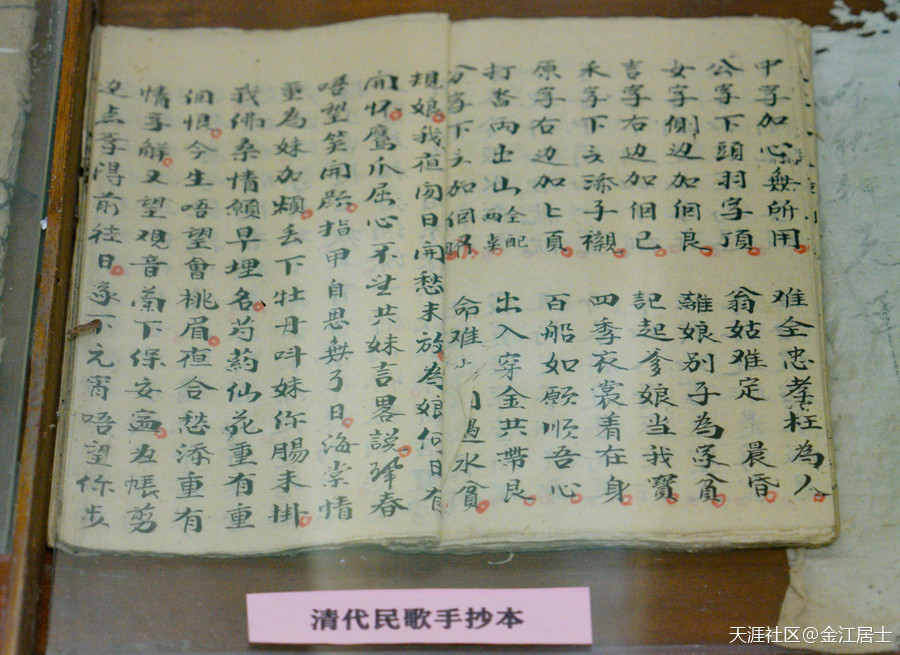 中字加心無所用 难全忠孝枉為人
公字下頭羽字頂 翁姑难定晨昏
女字側边加個良 離娘别子為家貧
言字右边加個己 記起爹娘當我寳
禾字下文添子襯 四季衣裳着在身
原字右边加上頁 百船如願順吾心
打沓两出山全配 出入穿金共帶艮
分字下文加個 命难 水貧
規娘我直闷日開愁未放為娘何日有
開怀鹰爪屈心不並共妹言畧談 春
唔望笑開 指甲自思無了日海棠情
重為妹加煩丢下牡丹呌妹你腸未掛
我佛桑情願早埋名芍葯仙花重有重
個恨今生唔望會桃眉直合愁添重有
情字解又望观音 下保安 帳剪
孝得前徒日 下元宵唔望你步
清代民歌手抄本
天涯社区@金江居士